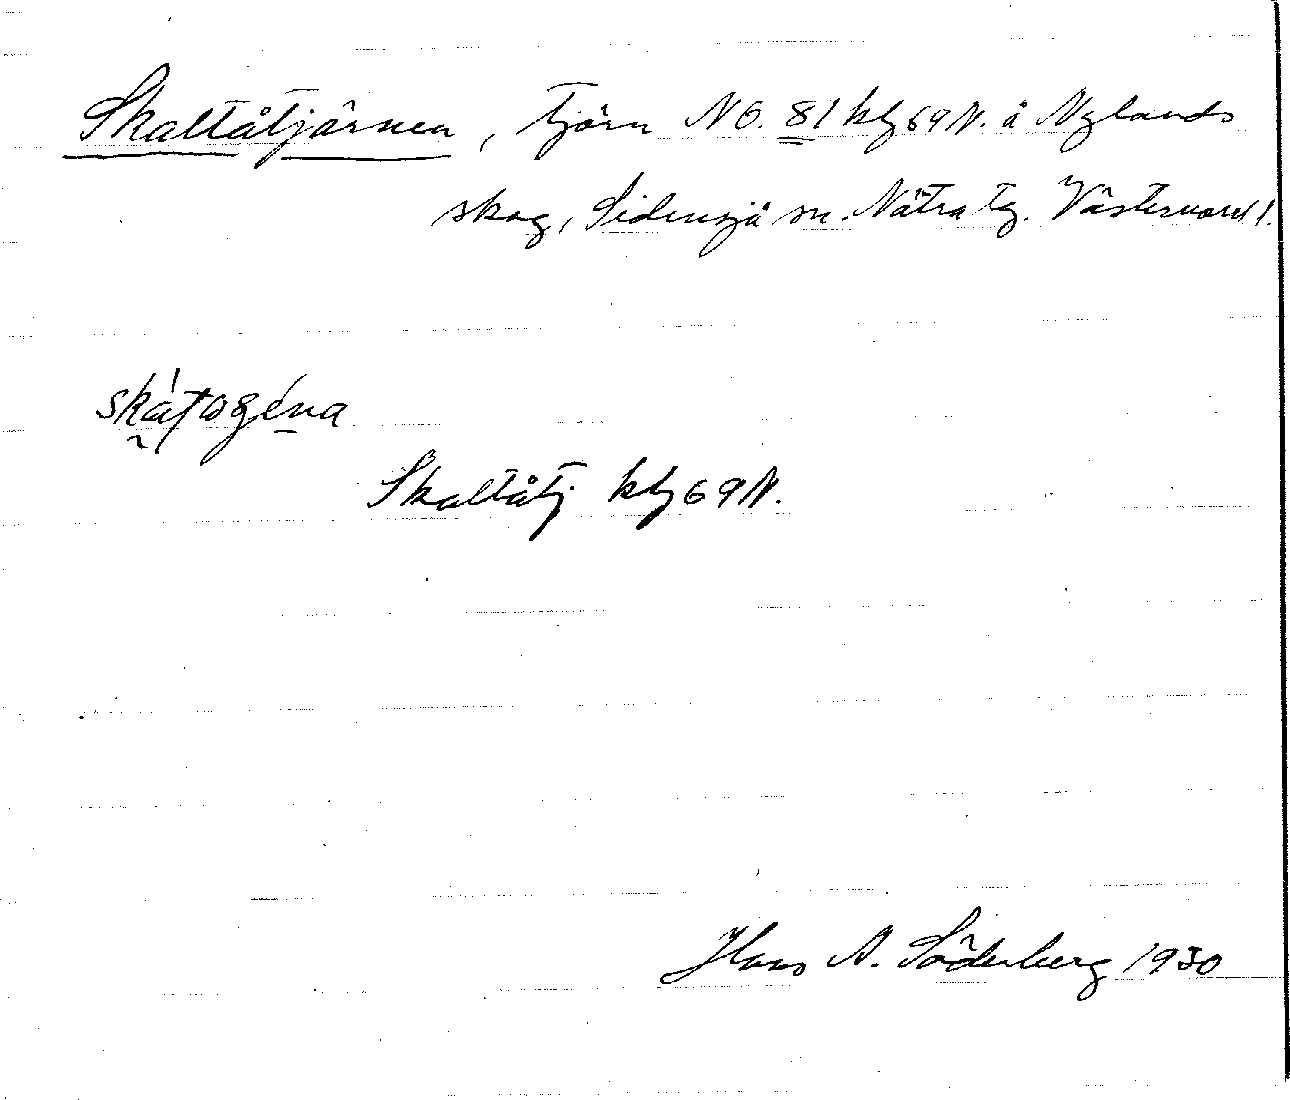 Skaltåtjärnen, tjärn NO. 81 kbl 69 N. å Nylands
skog, Sidensjö sn. Nätra tg. Västernorrl.
Skaltåtj kbl 69 N.
Hans N. Söderberg 1930